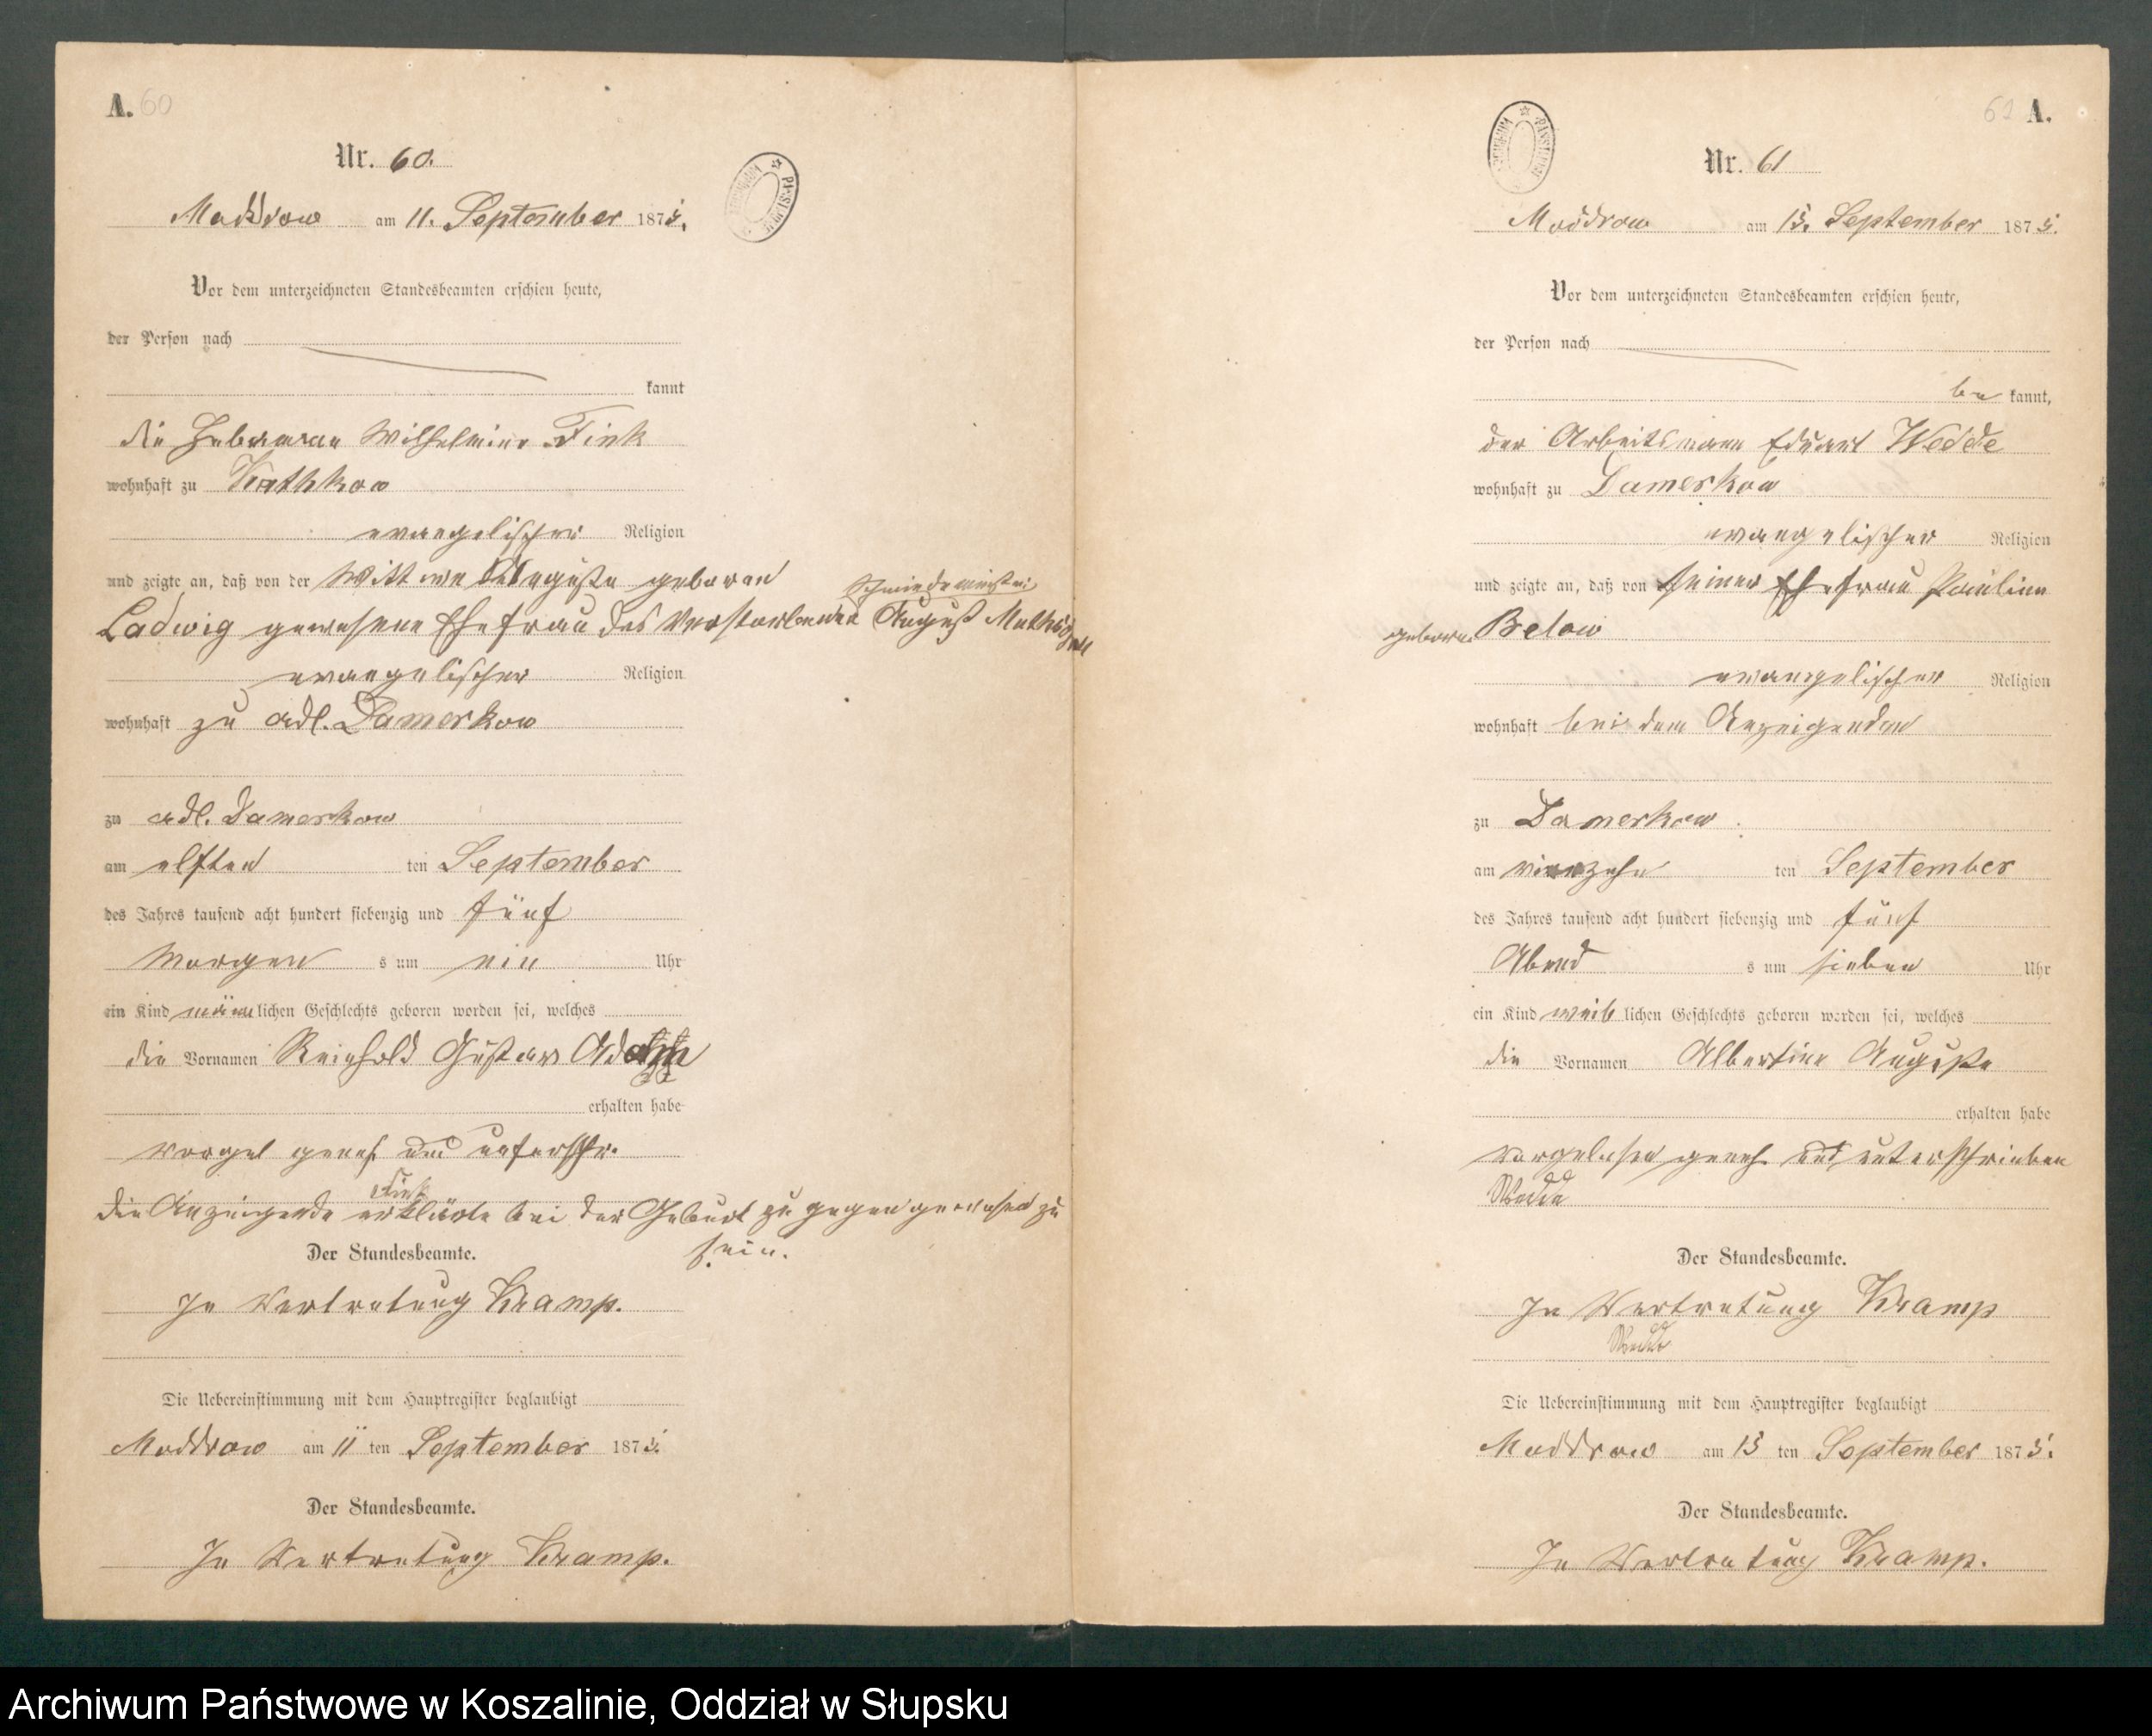 A. 60
Nr. 60.
Moddrow am 11. September 1875.
Vor dem unterzeichneten Standesbeamten erschien heute,
der Person nach
kannt
die Hebamme Wilhelmine Fink
wohnhaft zu Wathkow
evangelischer Religion
und zeigte an, daß von der Wittwe Auguste geboren
Schmiedemeister
Ladwig gewesene Ehefrau des verstorbenen August
evangelischer Religion
wohnhaft zu adl. Damerkow
zu adl. Damerkow
am elften ten September
des Jahres tausend acht hundert siebenzig und fünf
Morgen s um ein Uhr
ein Kind männlichen Geschlechts geboren worden sei, welches
die Vornamen Reinhold Gustav
erhalten habe
vorgel geneh und unterschr.
Fink
die Anzeigende erklärte bei der Geburt zu gegen gewesen zu
sein.
Der Standesbeamte.
In Vertretung Kramp.
Die Uebereinstimmung mit dem Hauptregister beglaubigt
Moddrow am 11 ten September 1875.
Der Standesbeamte.
In Vertretung Kramp.
A.
Nr. 61
Moddrow am 15. September 1875.
Vor dem unterzeichneten Standesbeamten erschien heute,
der Person nach
be kannt,
der Arbeitsmann Eduart Wedde
wohnhaft zu Damerkow
evangelischer Religion
und zeigte an, daß von seiner Ehefrau Pauline
geborne Below
evangelischer Religion
wohnhaft bei dem Anzeigenden
zu Damerkow
am vierzehn ten September
des Jahres tausend acht hundert siebenzig und fünf
Abend s um sieben Uhr
ein Kind weiblichen Geschlechts geboren worden sei, welches
die Vornamen Albertine Auguste
erhalten habe
vorgelesen geneh. und unterschrieben
Wedde
Der Standesbeamte.
In Vertretung Kramp
Wedde
Die Uebereinstimmung mit dem Hauptregister beglaubigt
Moddrow am 15 ten September 1875.
Der Standesbeamte.
In Vertretung Kramp.
Archiwum Państwowe w Koszalinie, Oddział w Słupsku